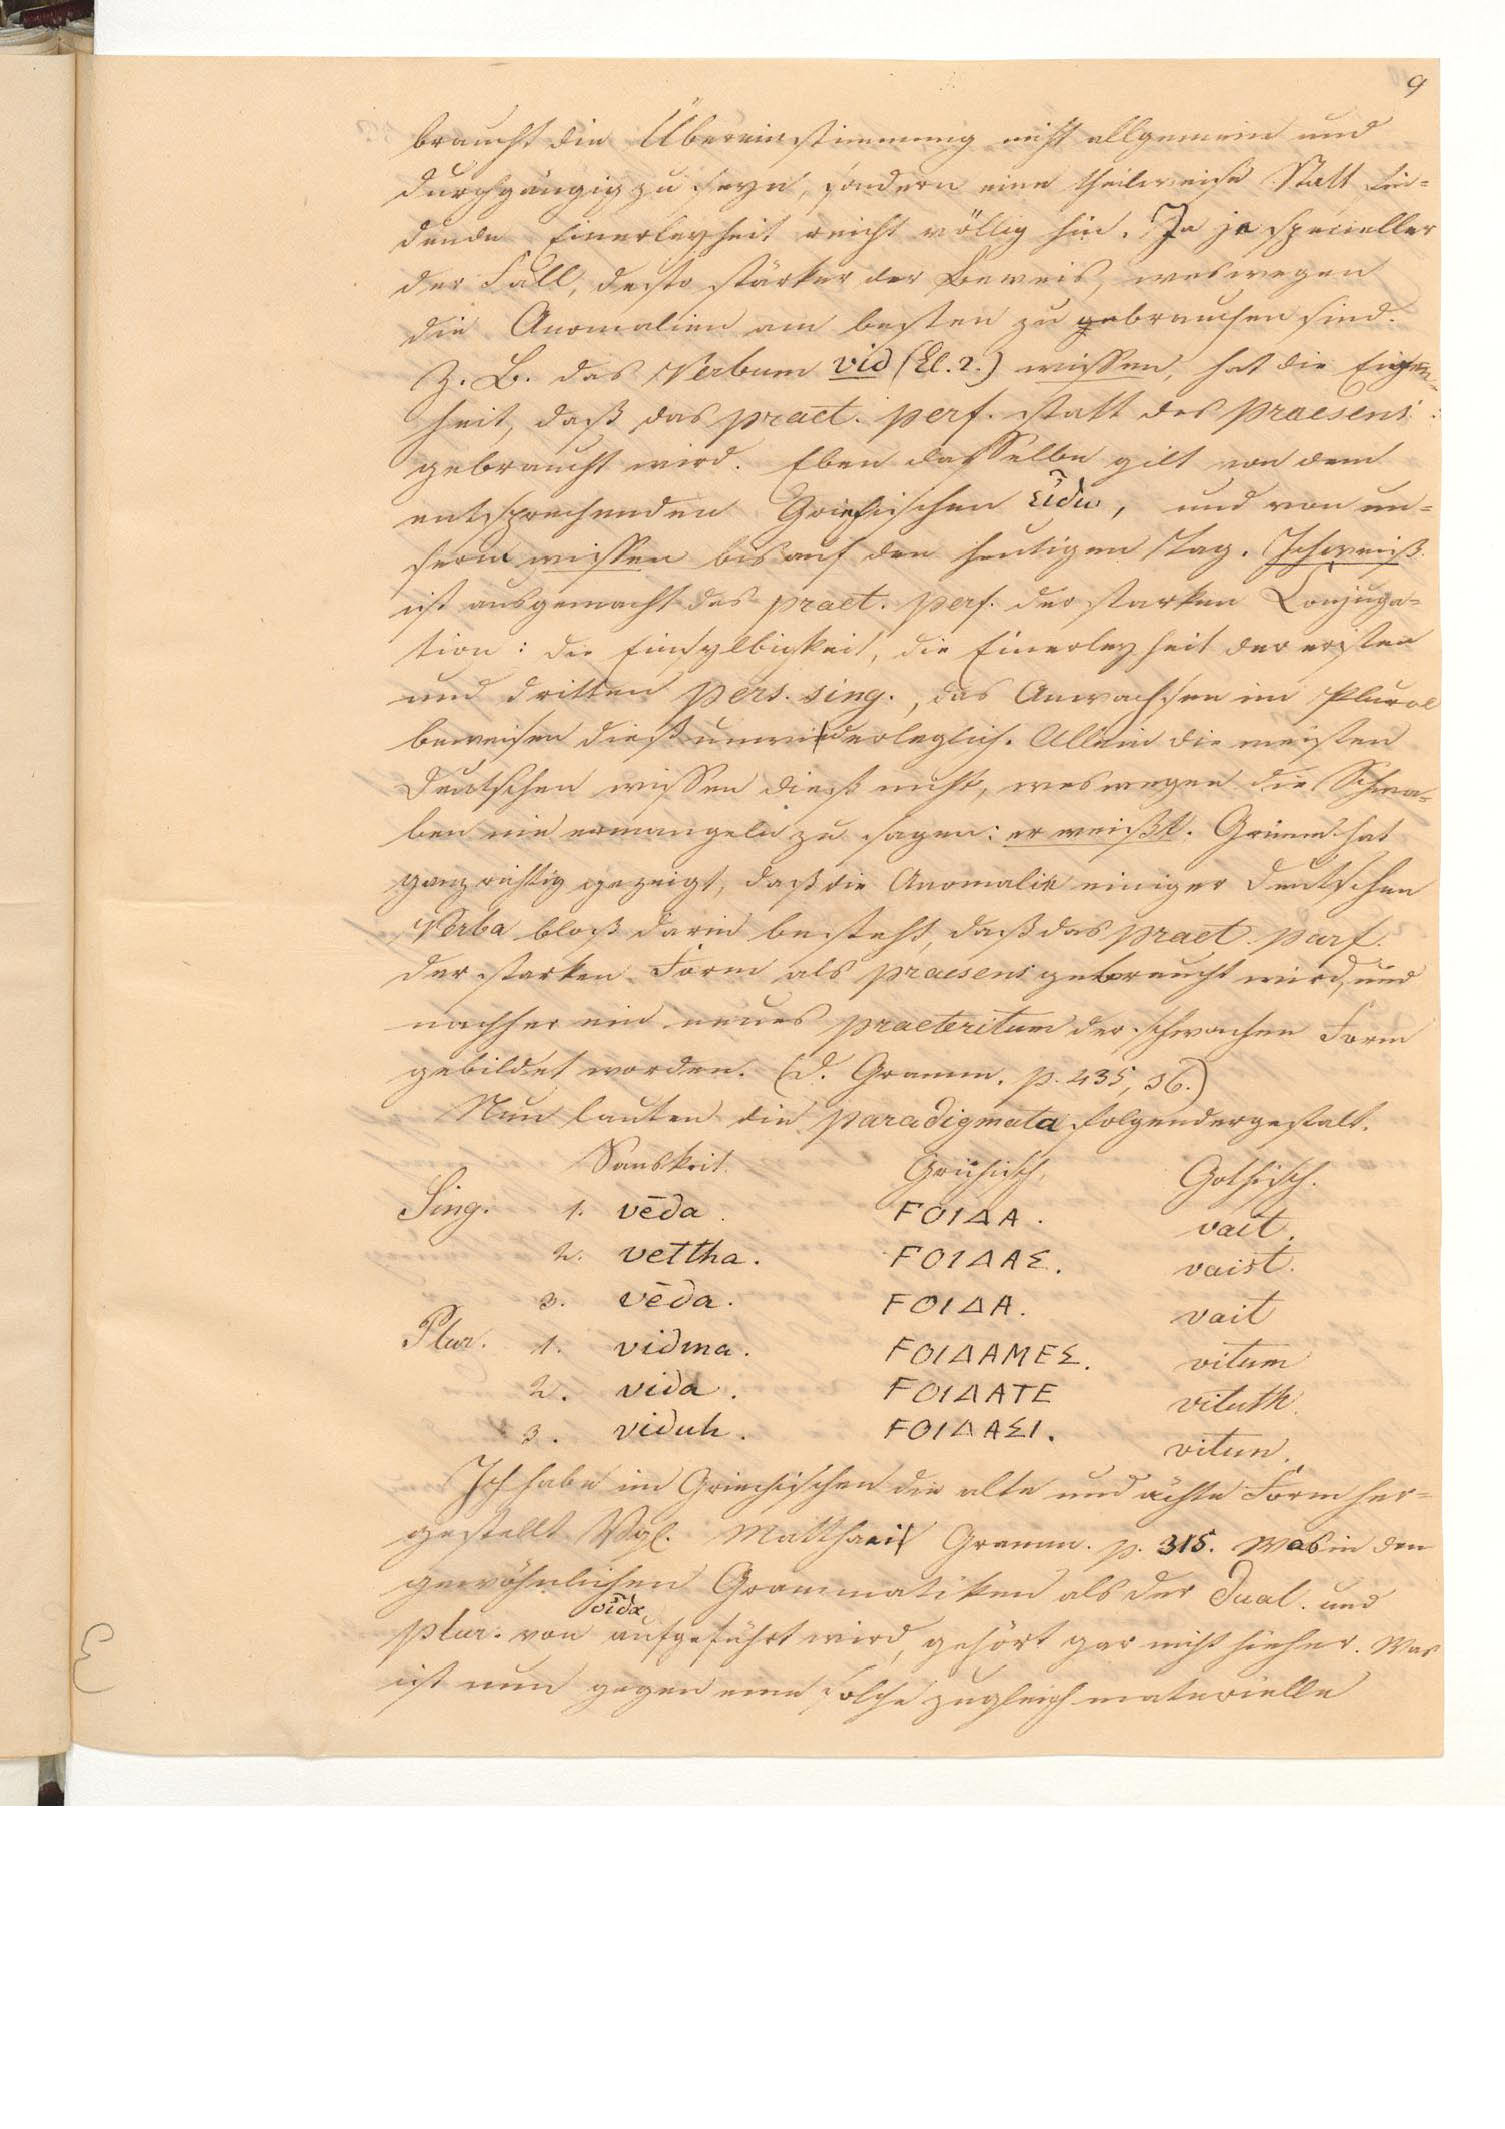 9
braucht die Übereinstimmung nicht allgemein und
durchgängig zu seyn, sondern eine theilweise Statt fin-
dende Einerleyheit reicht völlig hin. Ja je specieller
der Fall, desto stärker der Beweis, weswegen
die Anomalien am besten zu gebrauchen sind.
Z. B. das Verbum vid (Cl. 2.) wissen, hat die Eigen-
heit, daß das praet. perf. statt des praesens
gebraucht wird. Eben dasselbe gilt von dem
entsprechenden Griechischen εἴδω, und von un-
serm wissen bis auf den heutigen Tag. Ich weiß
ist ausgemacht das praet. perf. der starken Conjuga-
tion: die Einsylbigkeit, die Einerleyheit der ersten
und dritten pers. sing., das Anwachsen im Plural
beweisen dieß unwiderleglich. Allein die meisten
Deutschen wissen dieß nicht, weswegen die Schwa-
ben nie ermangeln zu sagen: er weißt. Grimm hat
ganz richtig gezeigt, daß die Anomalie einiger Deutschen
Verba bloß darin besteht, daß das praet. perf.
der starken Form als praesens gebraucht wird, und
nachher ein neues praeteritum der schwachen Form
gebildet worden. (D. Gramm. p. 435, 36.)
Nun lauten die paradigmata folgendergestalt.
Sanskrit. Griechisch. Gothisch.
Sing. 1. vēda. FΟΙΔΑ. vait.
2. vettha. FΟΙΔΑΣ. vaist.
3. vēda. FΟΙΔΑ. vait
Plur. 1. vidma. FΟΙΔΑΜΕΣ. vitum
2. vida. FΟΙΔΑΤΕ vituth.
3. viduh. FΟΙΔΑΣΙ. vitun.
Ich habe im Griechischen die alte und ächte Form her-
gestellt Vgl. Matthaei Gramm. p. 315. Was in den
gewöhnlichen Grammatiken als der Dual. und
plur. von οἶδα aufgeführt wird, gehört gar nicht hieher. Was
ist nun gegen eine solche zugleich materielle